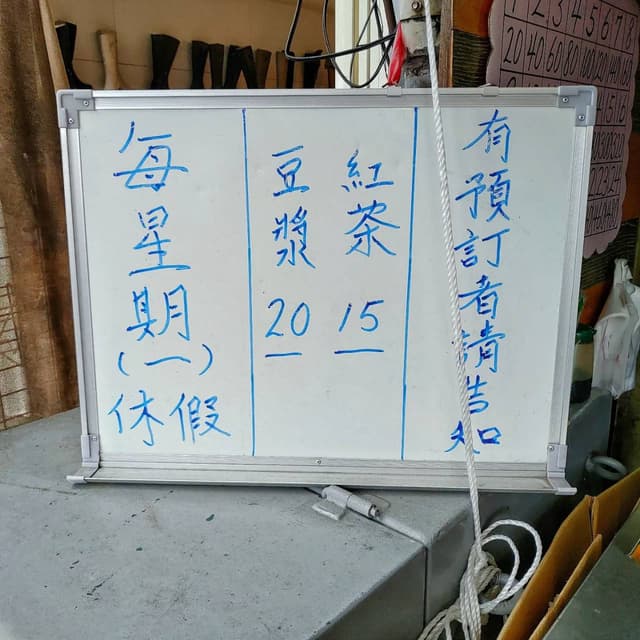 有預訂者請告知
紅茶 15
豆漿 20
每星期(一)休假
1 2 3 4 5 6 7
20 40 60 80